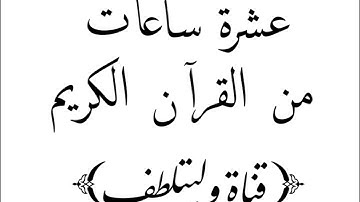 عشرة ساعات
من القرآن الكريم
﴿قناة وليتلطف﴾